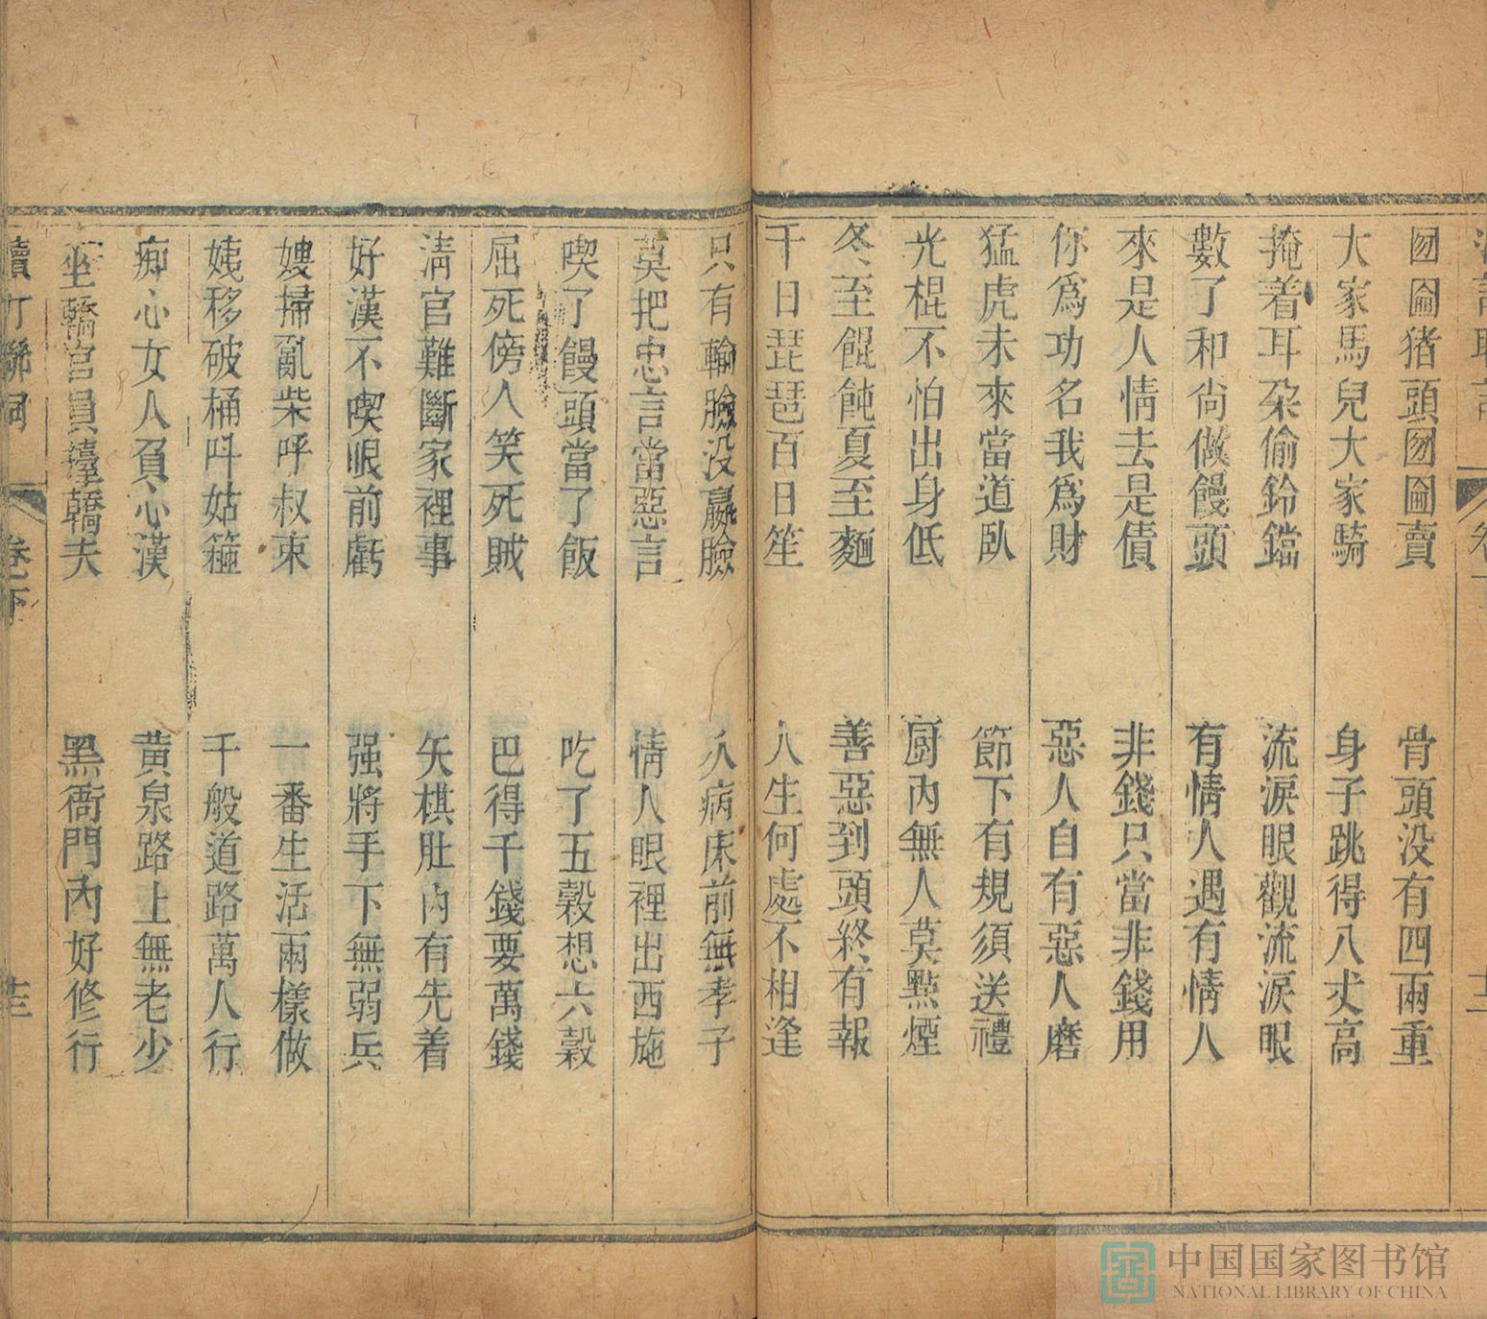 囫圇猪頭囫圇賣 骨頭没有四兩重
大家馬兒大家騎 身子跳得八丈高
掩着耳朶偷鈴鐺 流淚眼觀流淚眼
數了和尙做饅頭 有情人遇有情人
來是人情去是債 非錢只當非錢用
你爲功名我爲財 惡人自有惡人磨
猛虎未來當道臥 節下有規須送禮
光棍不怕出身低 廚內無人莫點煙
冬至餛飩夏至麵 善惡到頭終有報
千日琵琶百日笙 人生何處不相逢
只有輸臉没贏臉 久病床前無孝子
莫把忠言當惡言 情人眼裡出西施
喫了饅頭當了飯 吃了五穀想六穀
屈死傍人笑死賊 巴得千錢要萬錢
淸官難斷家裡事 矢棋肚內有先着
好漢不喫眼前虧 强將手下無弱兵
嫂掃亂柴呼叔束 一番生活兩樣做
姨移破桶呌姑箍 千般道路萬人行
痴心女人負心漢 黃泉路上無老少
坐轎官員擡轎夫 黑衙門內好修行
卷下
中国国家图书馆
NATIONAL LIBRARY OF CHINA